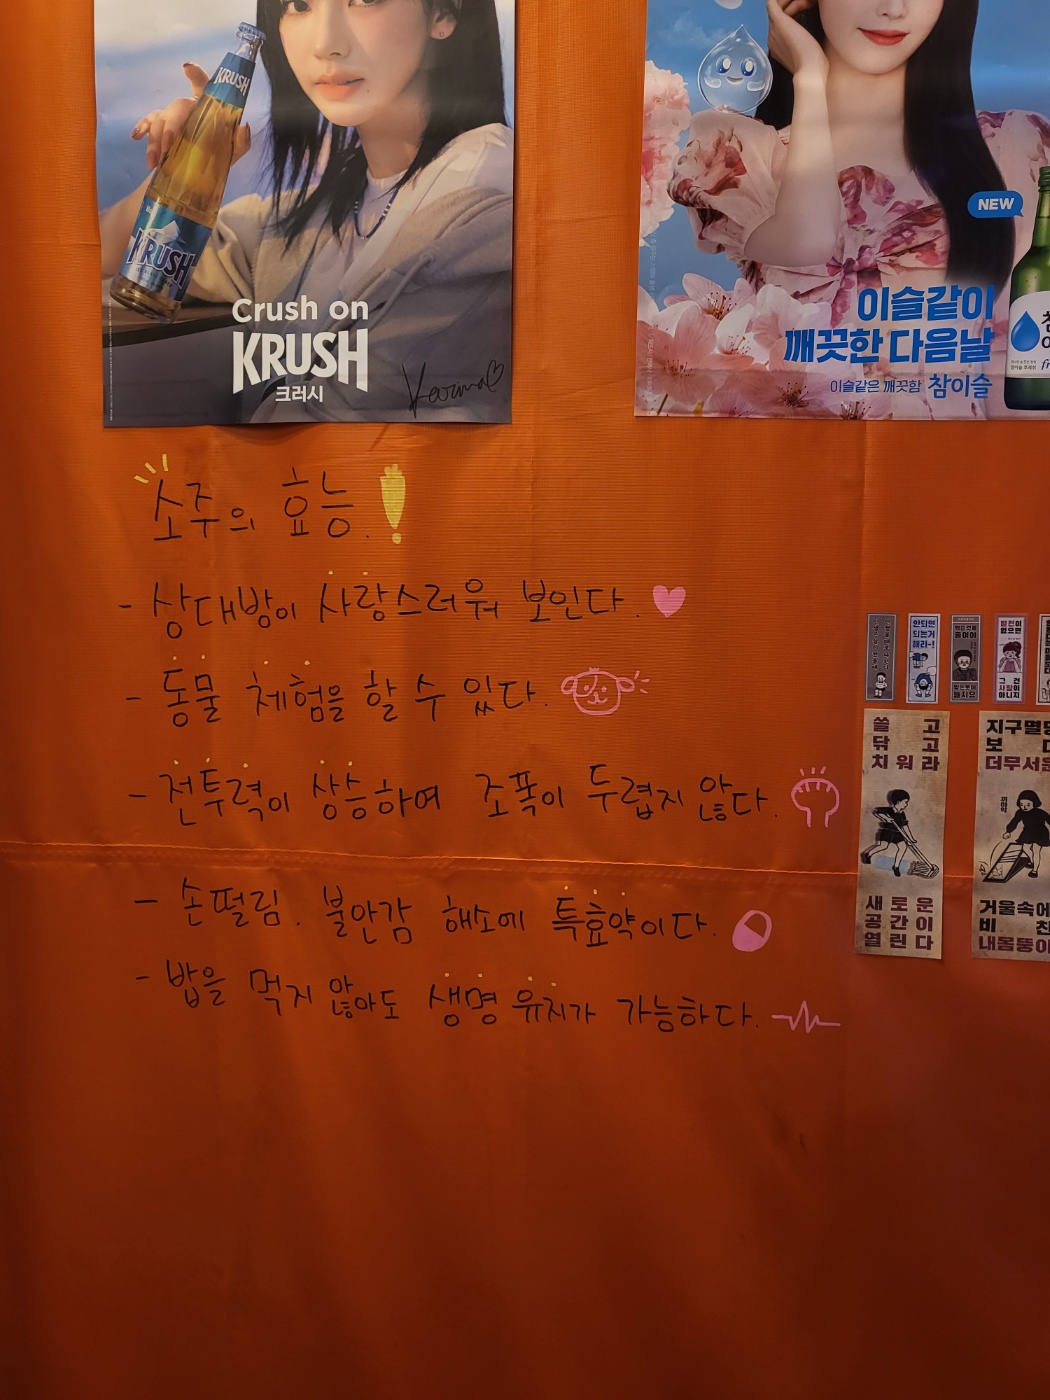 KRUSH
KRUSH
Crush on
KRUSH
크러시
Karina
NEW
이슬같이
깨끗한 다음날
이슬같은 깨끗함 참이슬
소주의 효능.
- 상대방이 사랑스러워 보인다.
- 동물 체험을 할 수 있다.
- 전투력이 상승하여 조폭이 두렵지 않다.
- 손떨림. 불안감 해소에 특효약이다.
- 밥을 먹지 않아도 생명 유지가 가능하다.
안되면
되는거
해라~!
말썽이
없으면
그건
사람이
아니지
쓸고
닦고
치워라
새로운
공간이
열린다
지구멸망
보다
더무서운
거울속에
비친
내몸뚱이